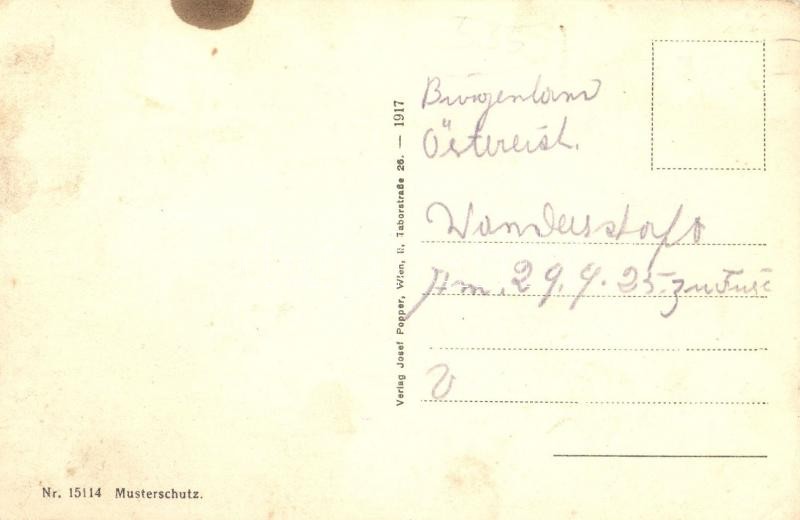 Burgenland
Östereich.
Wanderschaft
Am. 29. 9. 25. zu Fuse
Verlag Josef Popper, Wien, II, Taborstraße 26. — 1917
Nr. 15114 Musterschutz.